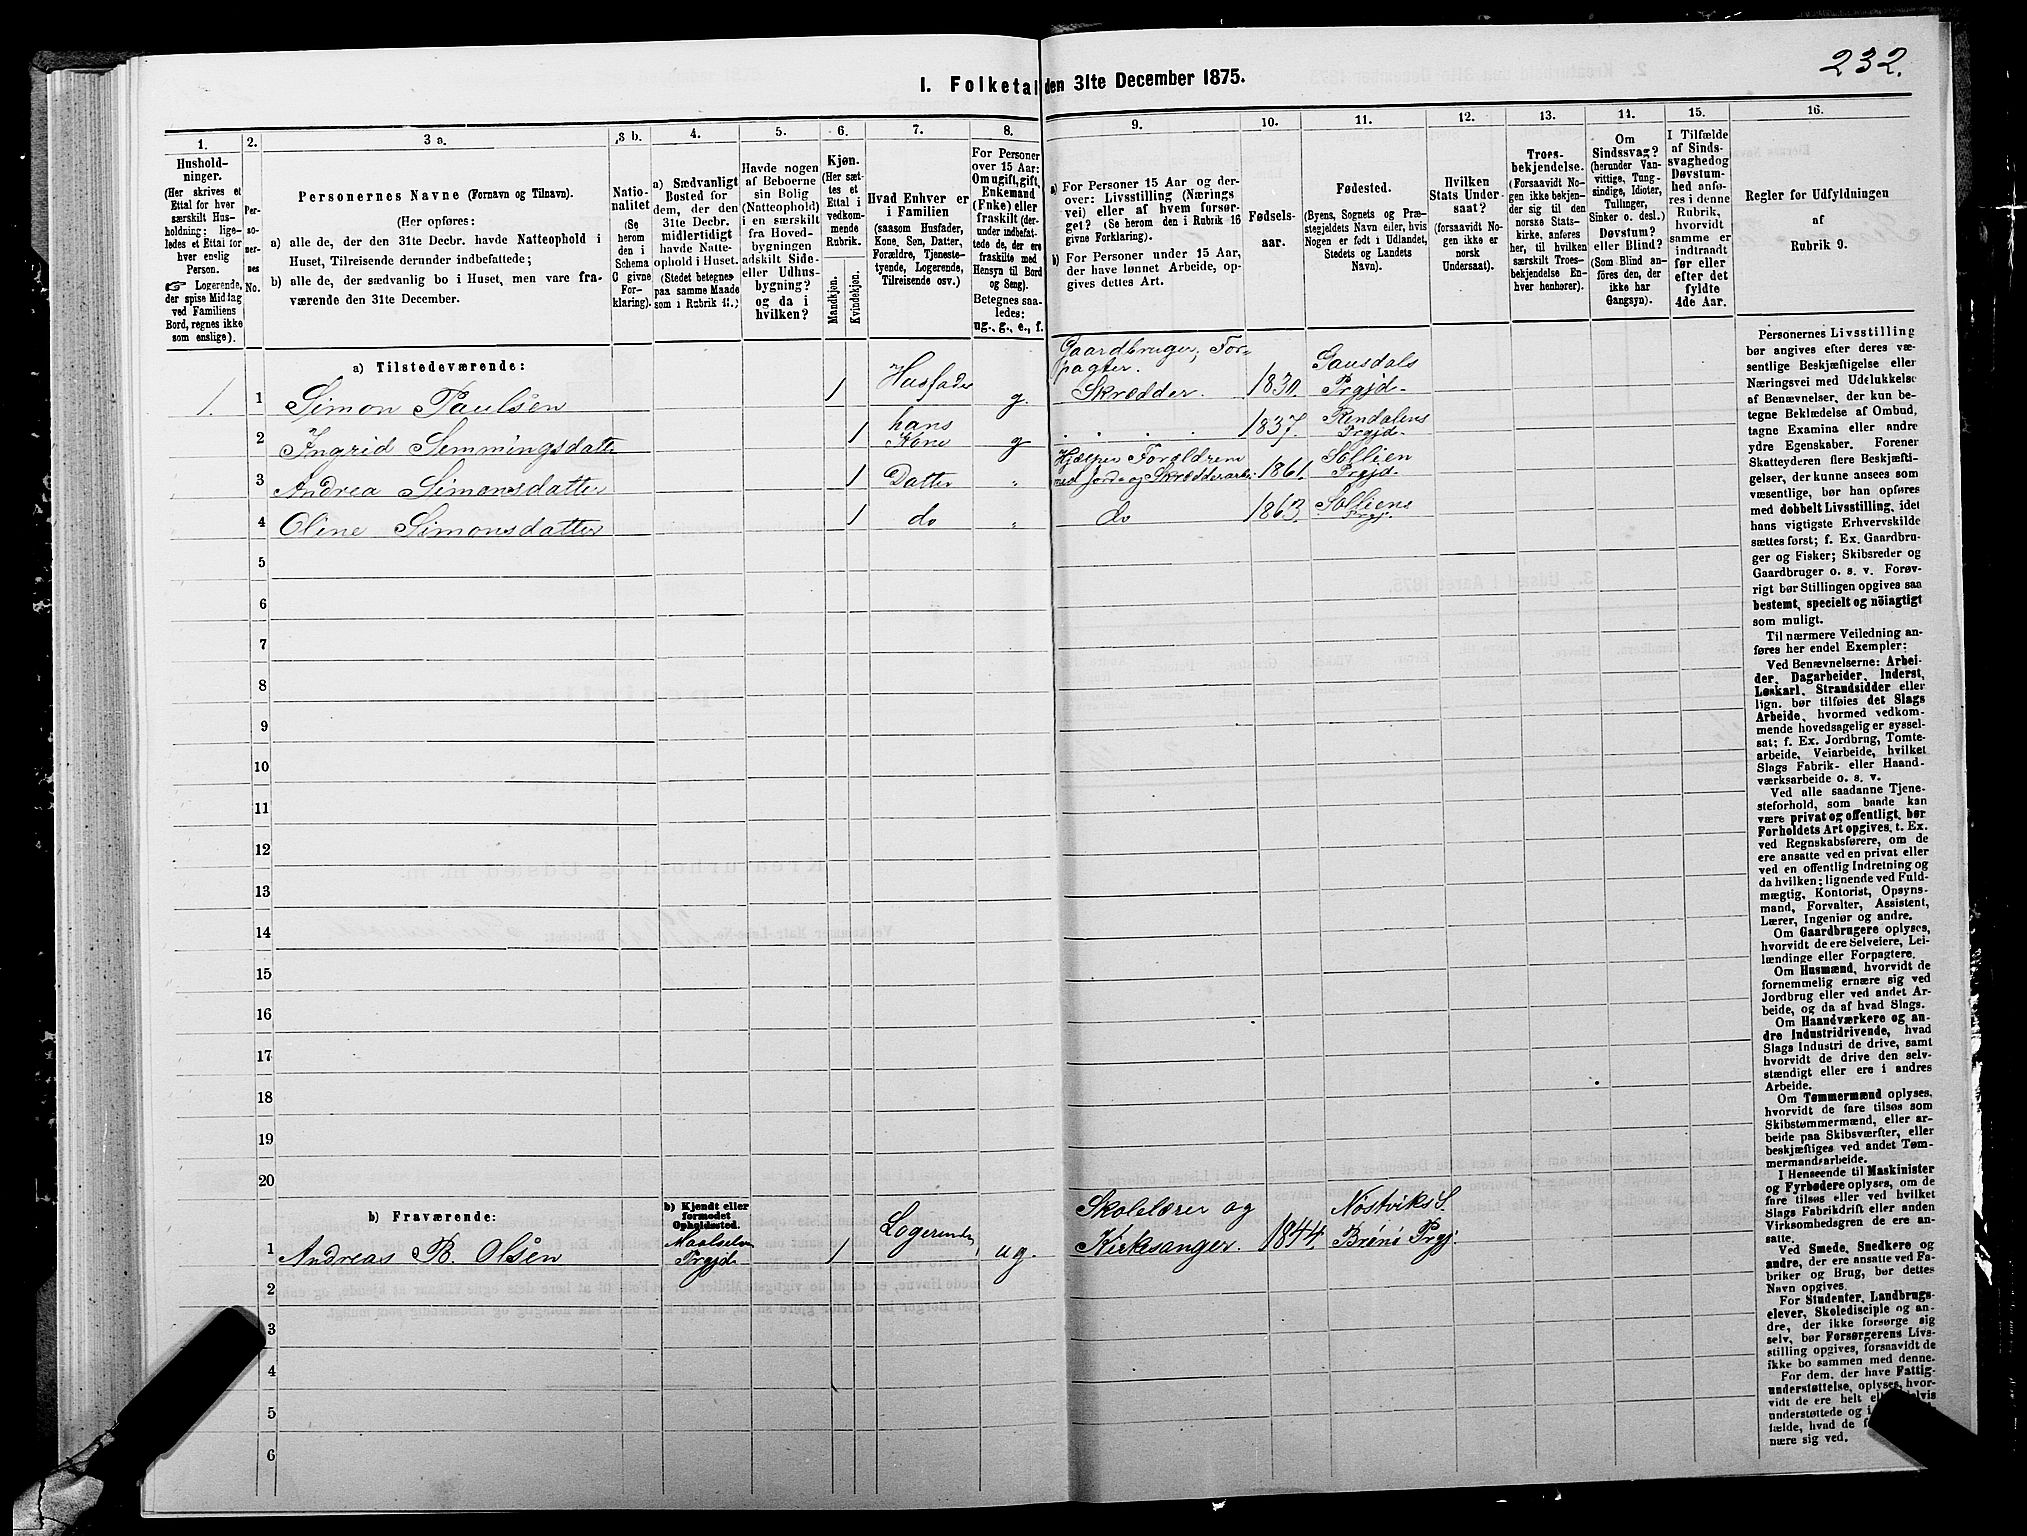 232.
I. Folketal den 31te December 1875.
1.
Hushold-
ninger.
(Her skrives et
Ettal for hver
særskilt Hus-
holdning; lige-
ledes et Ettal for
hver enslig
Person.
☞ Logerende,
der spise Middag
ved Familiens
Bord, regnes ikke
som enslige).
2.
Per-
so-
ner-
nes
No.
3 a.
Personernes Navne (Fornavn og Tilnavn).
(Her opføres:
a) alle de, der den 31te Decbr. havde Natteophold i
Huset, Tilreisende derunder indbefattede;
b) alle de, der sædvanlig bo i Huset, men vare fra-
værende den 31te December.
3 b.
Natio-
nalitet
(Se
herom
den i
Schema
C givne
For-
klaring).
4.
a) Sædvanligt
Bosted for
dem, der den
31te Decbr.
midlertidigt
havde Natte-
ophold i Huset.
(Stedet betegnes
paa samme Maade
som i Rubrik 11.)
5.
Havde nogen
af Beboerne
sin Bolig
(Natteophold)
i en særskilt
fra Hoved-
bygningen
adskilt Side-
eller Udhus-
bygning?
og da i
hvilken?
6.
Kjøn.
(Her sæt-
tes et
Ettal i
vedkom-
mende
Rubrik.
Mandkjøn.
Kvindekjøn.
7.
Hvad Enhver er
i Familien
(saasom Husfader,
Kone, Søn, Datter,
Forældre, Tjeneste-
tyende, Logerende,
Tilreisende osv.)
8.
For Personer
over 15 Aar:
Om ugift, gift,
Enkemand
(Enke) eller
fraskilt (der-
under indbefat-
tede de, der ere
fraskilte med
Hensyn til Bord
og Seng).
Betegnes saa-
ledes:
ug., g., e., f.
9.
a) For Personer 15 Aar og der-
over: Livsstilling (Nærings
vei) eller af hvem forsør-
get? (Se herom den i Rubrik 16
givne Forklaring).
b) For Personer under 15 Aar,
der have lønnet Arbeide, op-
gives dettes Art.
10.
Fødsels-
aar.
11.
Fødested.
(Byens, Sognets og Præ-
stegjeldets Navn eller, hvis
Nogen er født i Udlandet,
Stedets og Landets
Navn).
12.
Hvilken
Stats Under-
saat?
(forsaavidt No-
gen ikke er
norsk
Undersaat).
13.
Troes-
bekjendelse.
(Forsaavidt No-
gen ikke bekjen-
der sig til den
norske Stats-
kirke, anføres
her, til hvilken
særskilt Troes-
bekjendelse En-
hver henhører).
14.
Om
Sindssvag?
(herunder Van-
vittige, Tung-
sindige, Idioter,
Tullinger,
Sinker o. desl.)
Døvstum?
eller Blind?
(Som Blind an-
føres den, der
ikke har
Gangsyn).
15.
I Tilfælde
af Sinds-
svaghed og
Døvstum-
hed anfø-
res i denne
Rubrik,
hvorvidt
samme er
indtraadt
før eller
efter det
fyldte
4de Aar.
16.
Regler for Udfyldningen
af
Rubrik 9.
a) Tilstedeværende:
1. 1 Simon Paulsen 1 Husfader g. Gaardbruger, For-
pagter.
Skrædder. 1830. Gausdals
Prgjd.
2 Ingrid Semmingsdatter 1 hans
Kone g . . . . 1837. Rendalens
Prgjd.
3 Andrea Simonsdatter 1 Datter " Hjælper Forældrene
med Jorde og Skrædderarb. 1861. Sollien
Prgjd.
4 Oline Simonsdatter 1 do " do 1863. Solliens
Prgj.
5
6
7
8
9
10
11
12
13
14
15
16
17
18
19
20
b) Fraværende:
b) Kjendt eller
formodet
Opholdssted.
1 Andreas B. Olsen Maalselv
Prgjd 1 Logerende ug. Skolelærer og
Kirkesanger. 1844. Nostviks S.
Brønø Prgj.
2
3
4
5
6
Personernes Livsstilling
bør angives efter deres væ-
sentlige Beskjæftigelse eller
Næringsvei med Udelukkelse
af Benævnelser, der kun be-
tegne Beklædelse af Ombud,
tagne Examina eller andre
ydre Egenskaber. Forener
Skatteyderen flere Beskjæfti-
gelser, der kunne ansees som
væsentlige, bør han opføres
med dobbelt Livsstilling, idet
hans vigtigste Erhvervskilde
sættes først; f. Ex. Gaardbru-
ger og Fisker; Skibsreder og
Gaardbruger o. s. v. Forøv-
rigt bør Stillingen opgives saa
bestemt, specielt og nöiagtigt
som muligt.
Til nærmere Veiledning an-
føres her endel Exempler:
Ved Benævnelserne: Arbei-
der, Dagarbeider, Inderst,
Løskarl, Strandsidder eller
lign. bør tilføies det Slags
Arbeide, hvormed vedkom-
mende hovedsagelig er syssel-
sat; f. Ex. Jordbrug, Tomte-
arbeide, Veiarbeide, hvilket
Slags Fabrik- eller Haand-
værksarbeide o. s. v.
Ved alle saadanne Tjene-
steforhold, som baade kan
være privat og offentligt, bør
Forholdets Art opgives, t. Ex.
ved Regnskabsførere, om de
ere ansatte ved en privat eller
ved en offentlig Indretning og
da hvilken; lignende ved Fuld-
mægtig, Kontorist, Opsyns-
mand, Forvalter, Assistent,
Lærer, Ingeniør og andre.
Om Gaardbrugere oplyses,
hvorvidt de ere Selveiere, Lei-
lændinge eller Forpagtere.
Om Husmænd, hvorvidt de
fornemmelig ernære sig ved
Jordbrug eller ved andet Ar-
beide, og da af hvad Slags.
Om Haandværkere og an-
dre Industridrivende, hvad
Slags Industri de drive, samt
hvorvidt de drive den selv-
stændigt eller ere i andres
Arbeide.
Om Tømmermænd oplyses,
hvorvidt de fare tilsøs som
Skibstømmermænd, eller ar-
beide paa Skibsværfter, eller
beskjæftiges ved andet Tøm-
mermandsarbeide.
I Henseende til Maskinister
og Fyrbødere oplyses, om de
fare tilsøs eller ved hvilket
Slags Fabrikdrift eller anden
Virksomhedsgren de ere an-
satte.
Ved Smede, Snedkere og
andre, der ere ansatte ved Fa-
briker og Brug, bør dettes
Navn opgives.
For Studenter, Landbrugs-
elever, Skoledisciple og an-
dre, der ikke forsørge sig
selv, bør Forsørgerens Livs-
stilling opgives, forsaavidt de
ikke bo sammen med denne.
For dem, der have Fattig-
understøttelse, oplyses, hvor-
vidt de ere helt
understøttede og i
fælde, hvad de
nære sig ved.